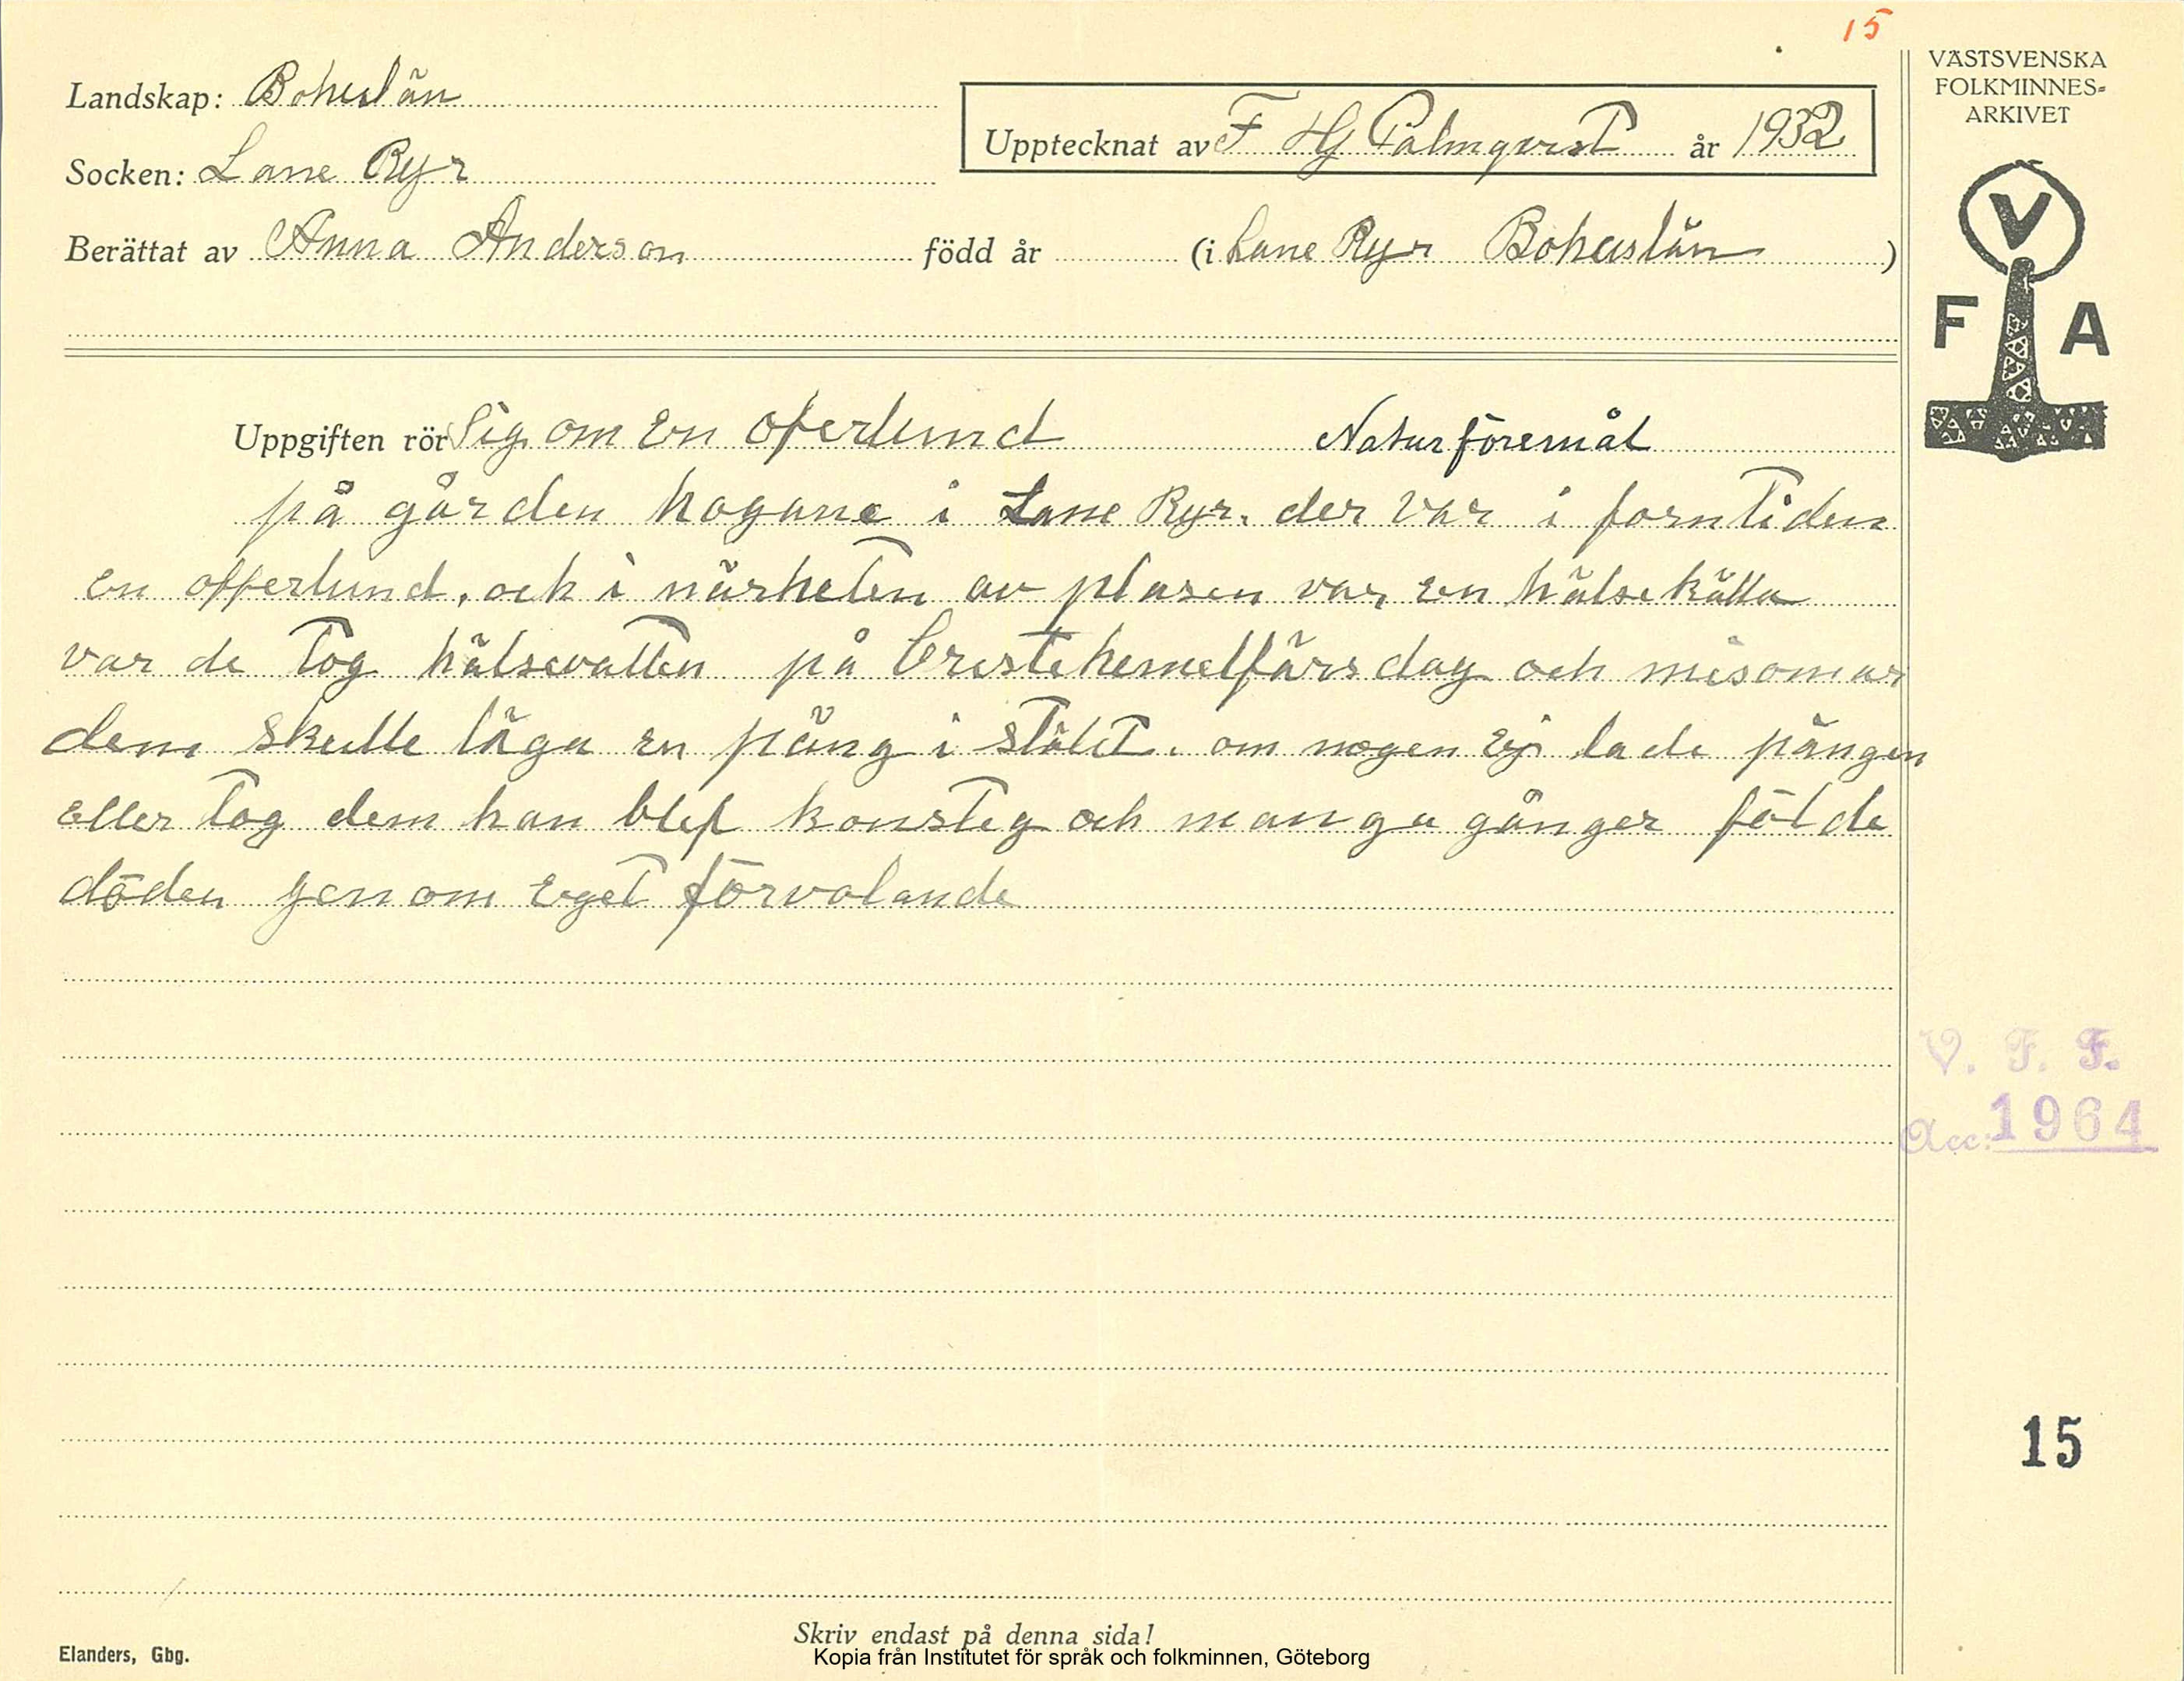 15
VÄSTSVENSKA
FOLKMINNES-
ARKIVET
Landskap: Bohuslän
Upptecknat av F Hj Palmqvist år 1932
Socken: Lane Ryr
Berättat av Anna Anderson född år (i Lane Ryr Bohuslän )
V
F A
Uppgiften rör Sig om En oferlund Naturföremål
på gården hogane i Lane Ryr. der var i forntiden
en offerlund. och i närheten av plasen var en hälsekälla
var de tog hälsevatten på Cristehemelfärsdag och misomar
dem skulle läga en päng i stälet. om nogen ej lade pängen
eller tog dem han blef konstig och manga gånger földe
döden genom eget förvolande
V. F. F.
Acc: 1964
15
Skriv endast på denna sida!
Elanders, Gbg.
Kopia från Institutet för språk och folkminnen, Göteborg